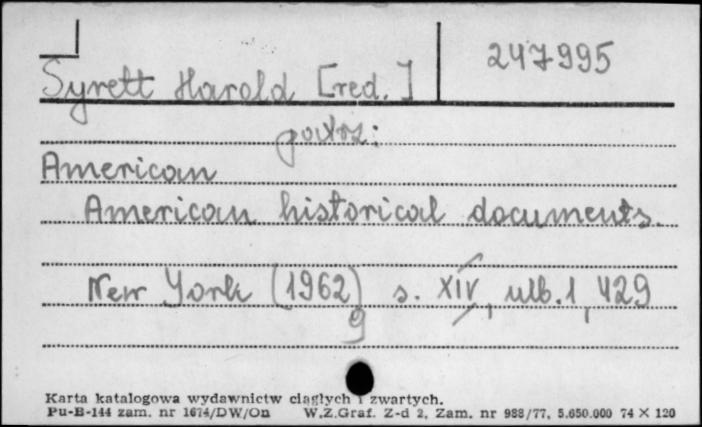 247995
Syrett Harold [red.]
patrz:
American
American historical documents.
New York (1962) s. XIV, ulb. 1, 429
9
Karta katalogowa wydawnictw ciągłych i zwartych.
Pu-B-144 zam. nr 1674/DW/On W.Z.Graf. Z-d 2, Zam. nr 988/77, 5.650.000 74 X 120